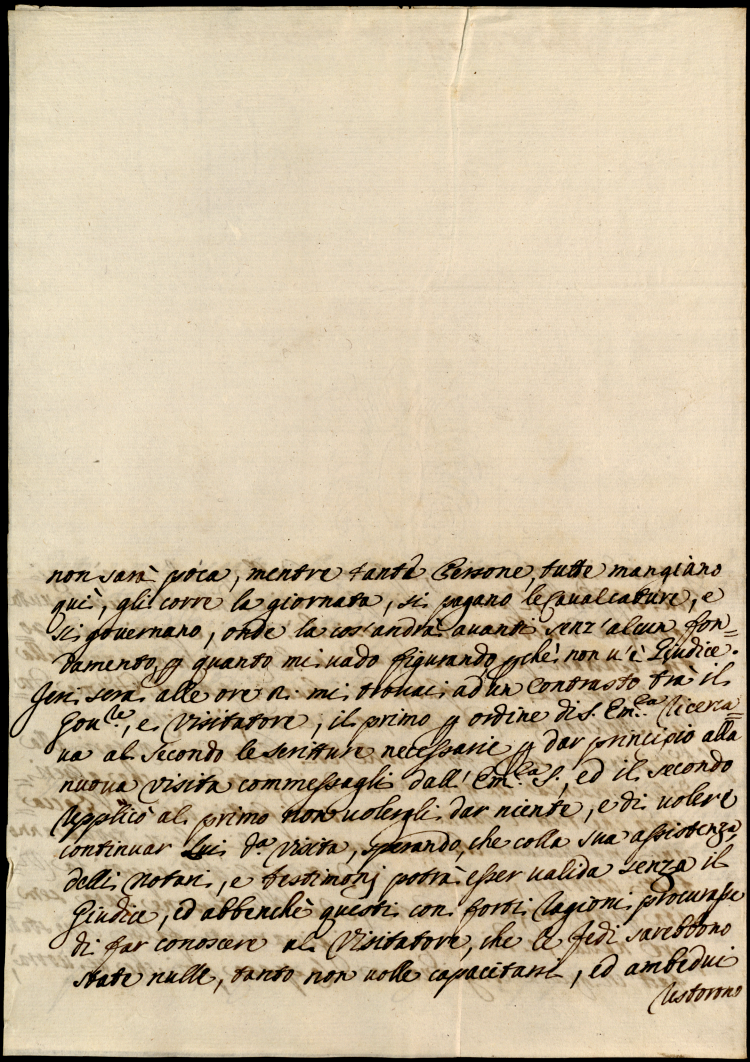 non sarà poca, mentre tante Persone, tutte mangiano
quì, gli corre la giornata, si pagano le Cavalcature, e
si governano, onde la cos'andrà avanti senz'alcun fon=
damento, p quanto mi vado figurando pchè non v'è Giudice.
Jeri sera alle ore n. mi trovai ad un Contrasto trà il
Gov.le, e Visitatore, il primo p ordine di S. Em.za ricerca=
va al secondo le scritture necessarie p dar principio alla
nuova visita commessagli dall'Em.za S., ed il secondo
replicò al primo non volergli dar niente, e di volere
continuar Lui d.a Visita, sperando, che colla sua assistenza
delli Notari, e testimonj potrà esser valida senza il
Giudice, ed abbenchè questi con forti ragioni procurasse
di far conoscere al Visitatore, che le fedi sarebbono
state nulle, tanto non volle capacitarsi, ed ambedui
restorono